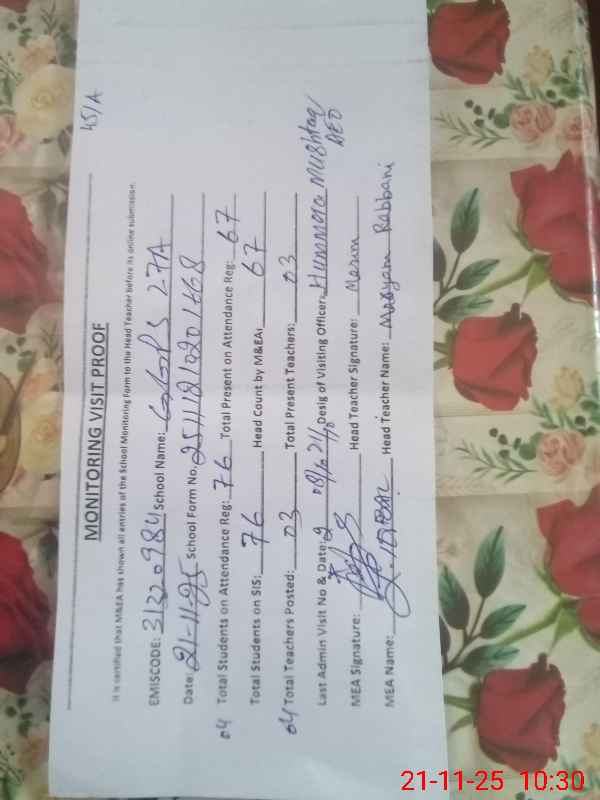 45/A
MONITORING VISIT PROOF
It is certified that M&EA has shown all entries of the School Monitoring Form to the Head Teacher before its online submission.
EMISCODE: 31320984 School Name: GGPS 27A
Date: 21-11-25 School Form No. 25111210201668
04 Total Students on Attendance Reg: 76 Total Present on Attendance Reg: 67
Total Students on SIS: 76 Head Count by M&EA: 67
04 Total Teachers Posted: 03 Total Present Teachers: 03
Last Admin Visit No & Date: 2 08/10 21/10 Desig of Visiting Officer: Hummera Mushtaq
AEO
MEA Signature: Head Teacher Signature: Marim
MEA Name: IQBAL Head Teacher Name: Maryam Rabbani
21-11-25 10:30